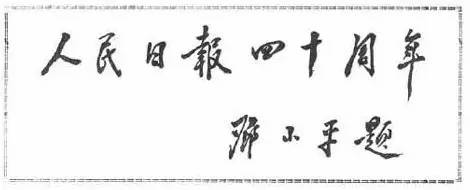 人民日報四十周年
鄧小平題